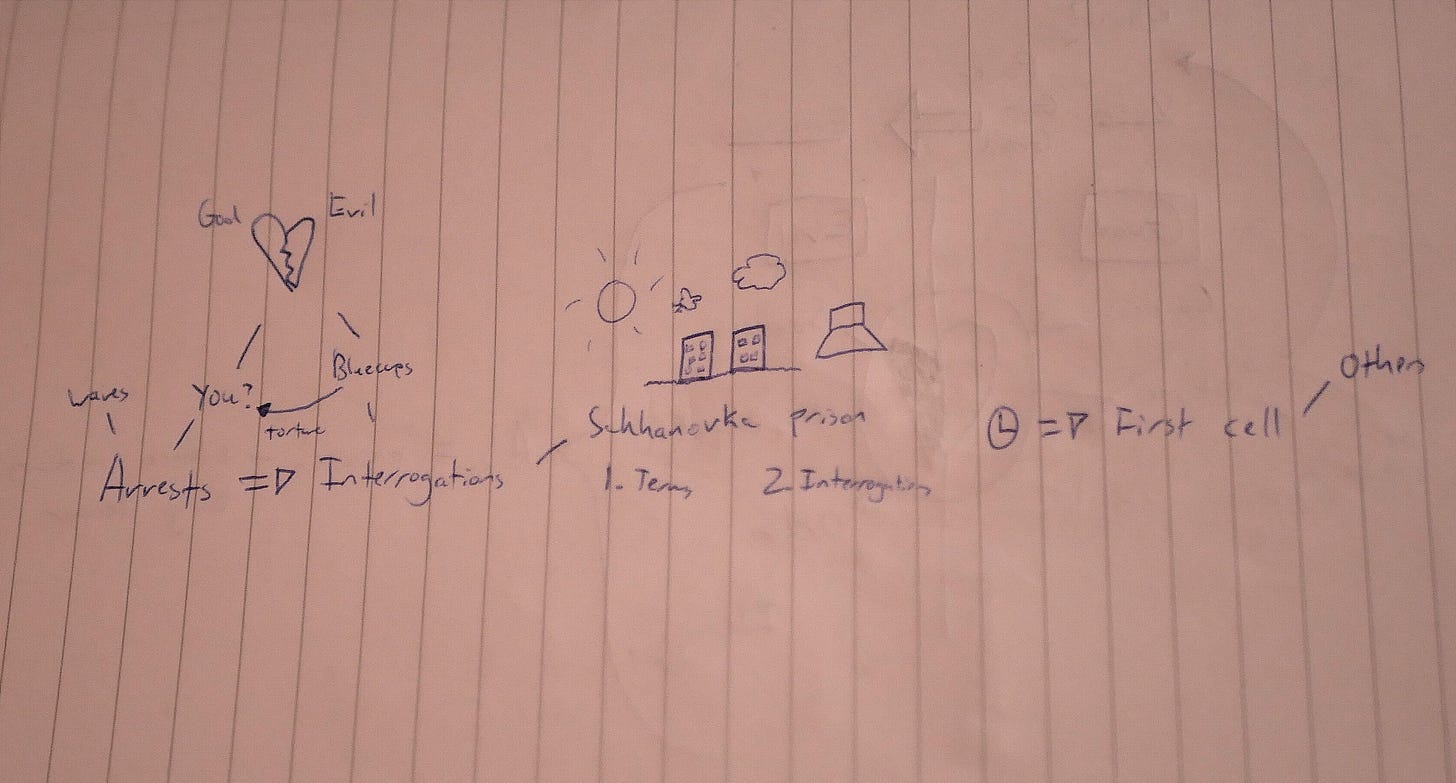 Good Evil
Bluecaps
waves You?
torture
Others
Sukhanovka prison
=> First cell
Arrests => Interrogations
1. Terms 2. Interrogations